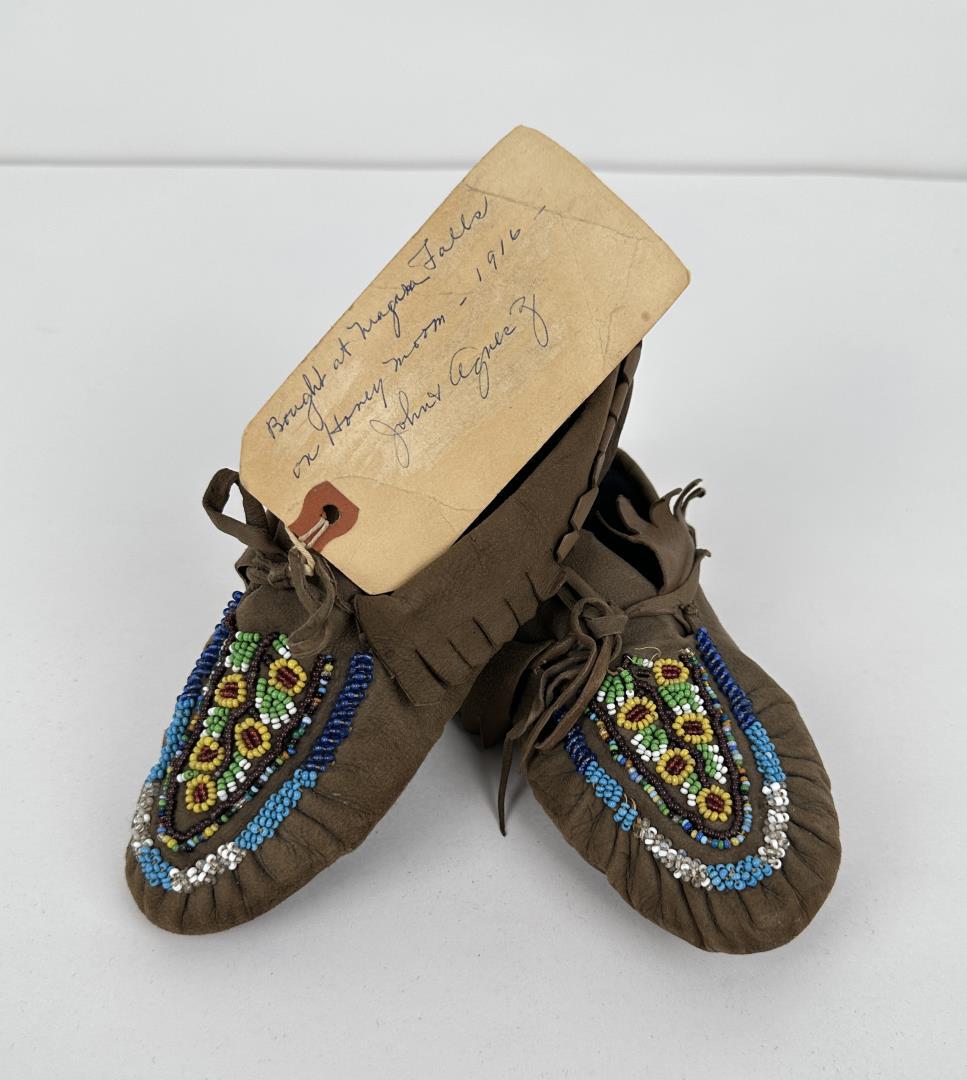 Bought at Niagara Falls
on Honey moon - 1916 -
John & Agnes Z